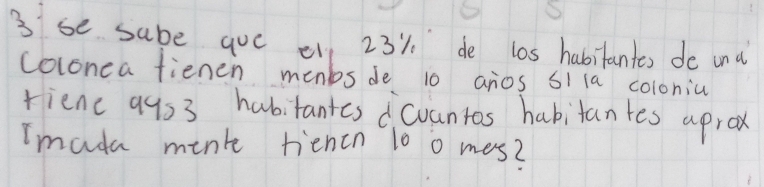 3 se sabe que el 23% de los habitantes de una
Colonea tienen menos de 10 años si la colonia
tiene 9953 habitantes ¿Cuantos habitantes aprox
imada mente tienen 10 o mes?